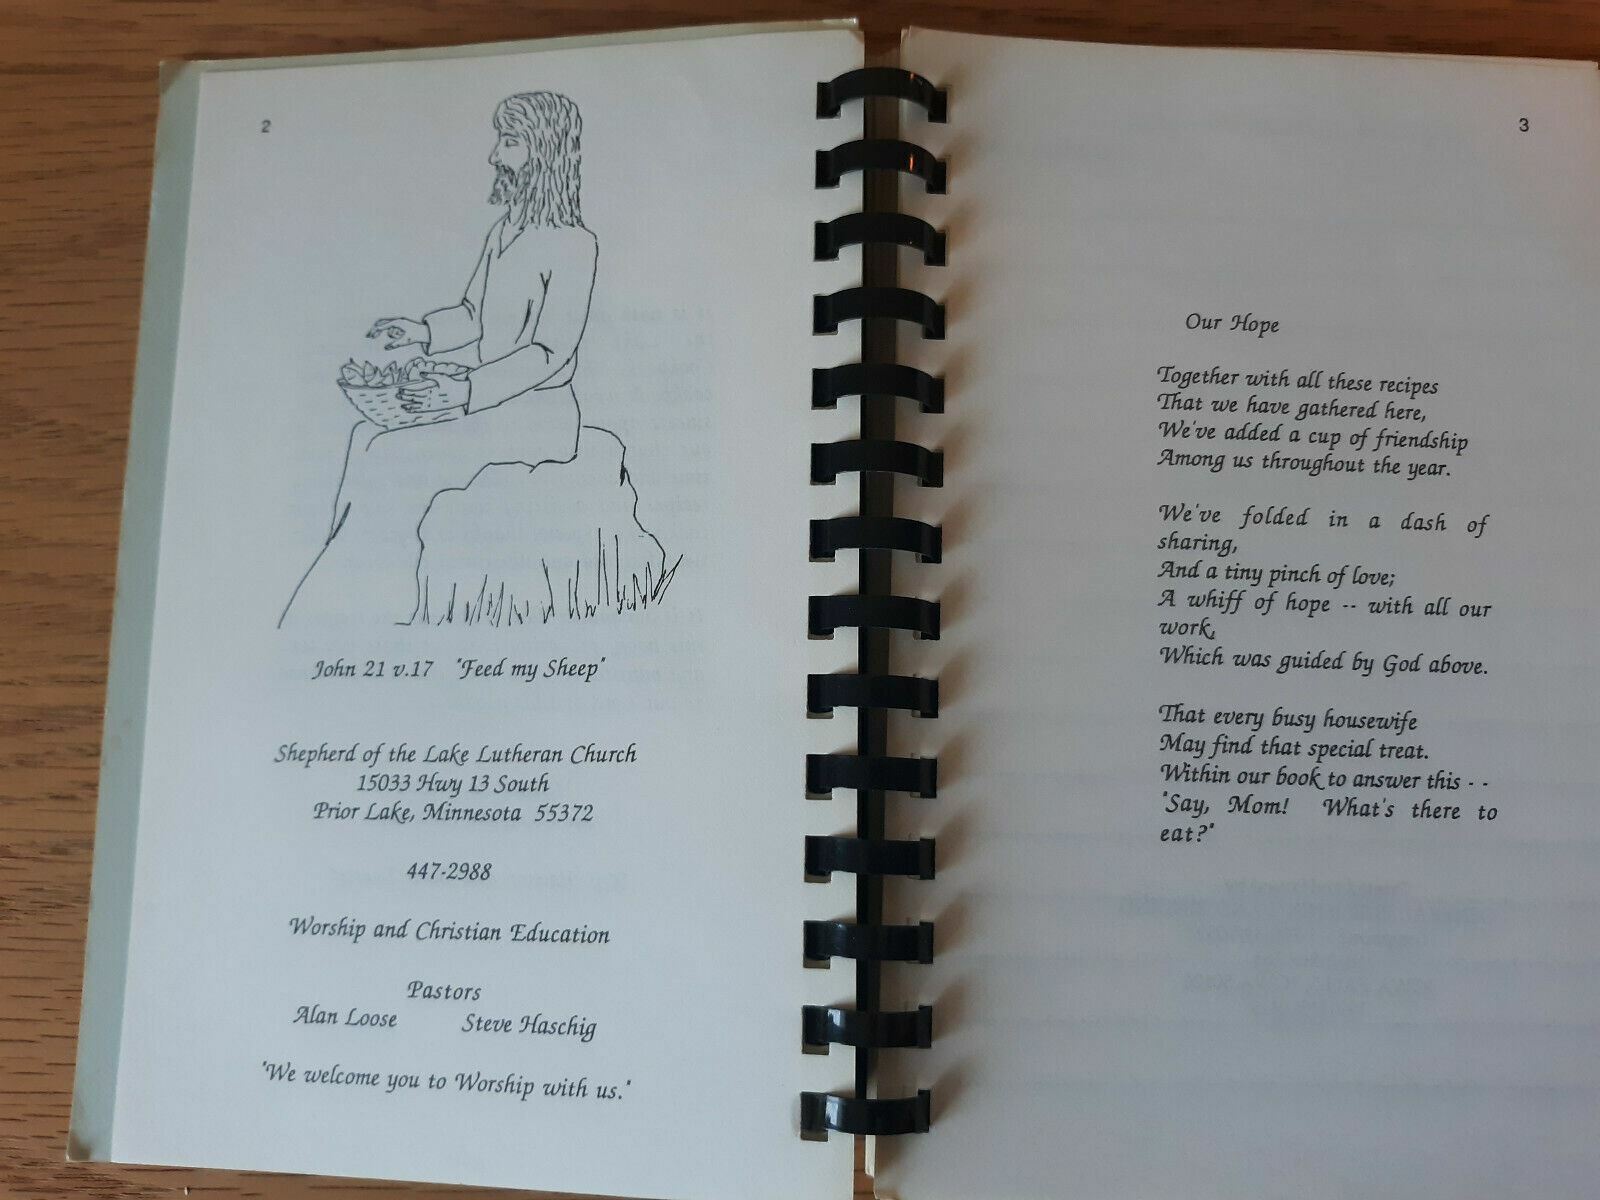 2
John 21 v.17 "Feed my Sheep"
Shepherd of the Lake Lutheran Church
15033 Hwy 13 South
Prior Lake, Minnesota 55372
447-2988
Worship and Christian Education
Pastors
Alan Loose Steve Haschig
"We welcome you to Worship with us."
3
Our Hope
Together with all these recipes
That we have gathered here,
We've added a cup of friendship
Among us throughout the year.
We've folded in a dash of
sharing,
And a tiny pinch of love;
A whiff of hope -- with all our
work,
Which was guided by God above.
That every busy housewife
May find that special treat.
Within our book to answer this - -
"Say, Mom! What's there to
eat?"